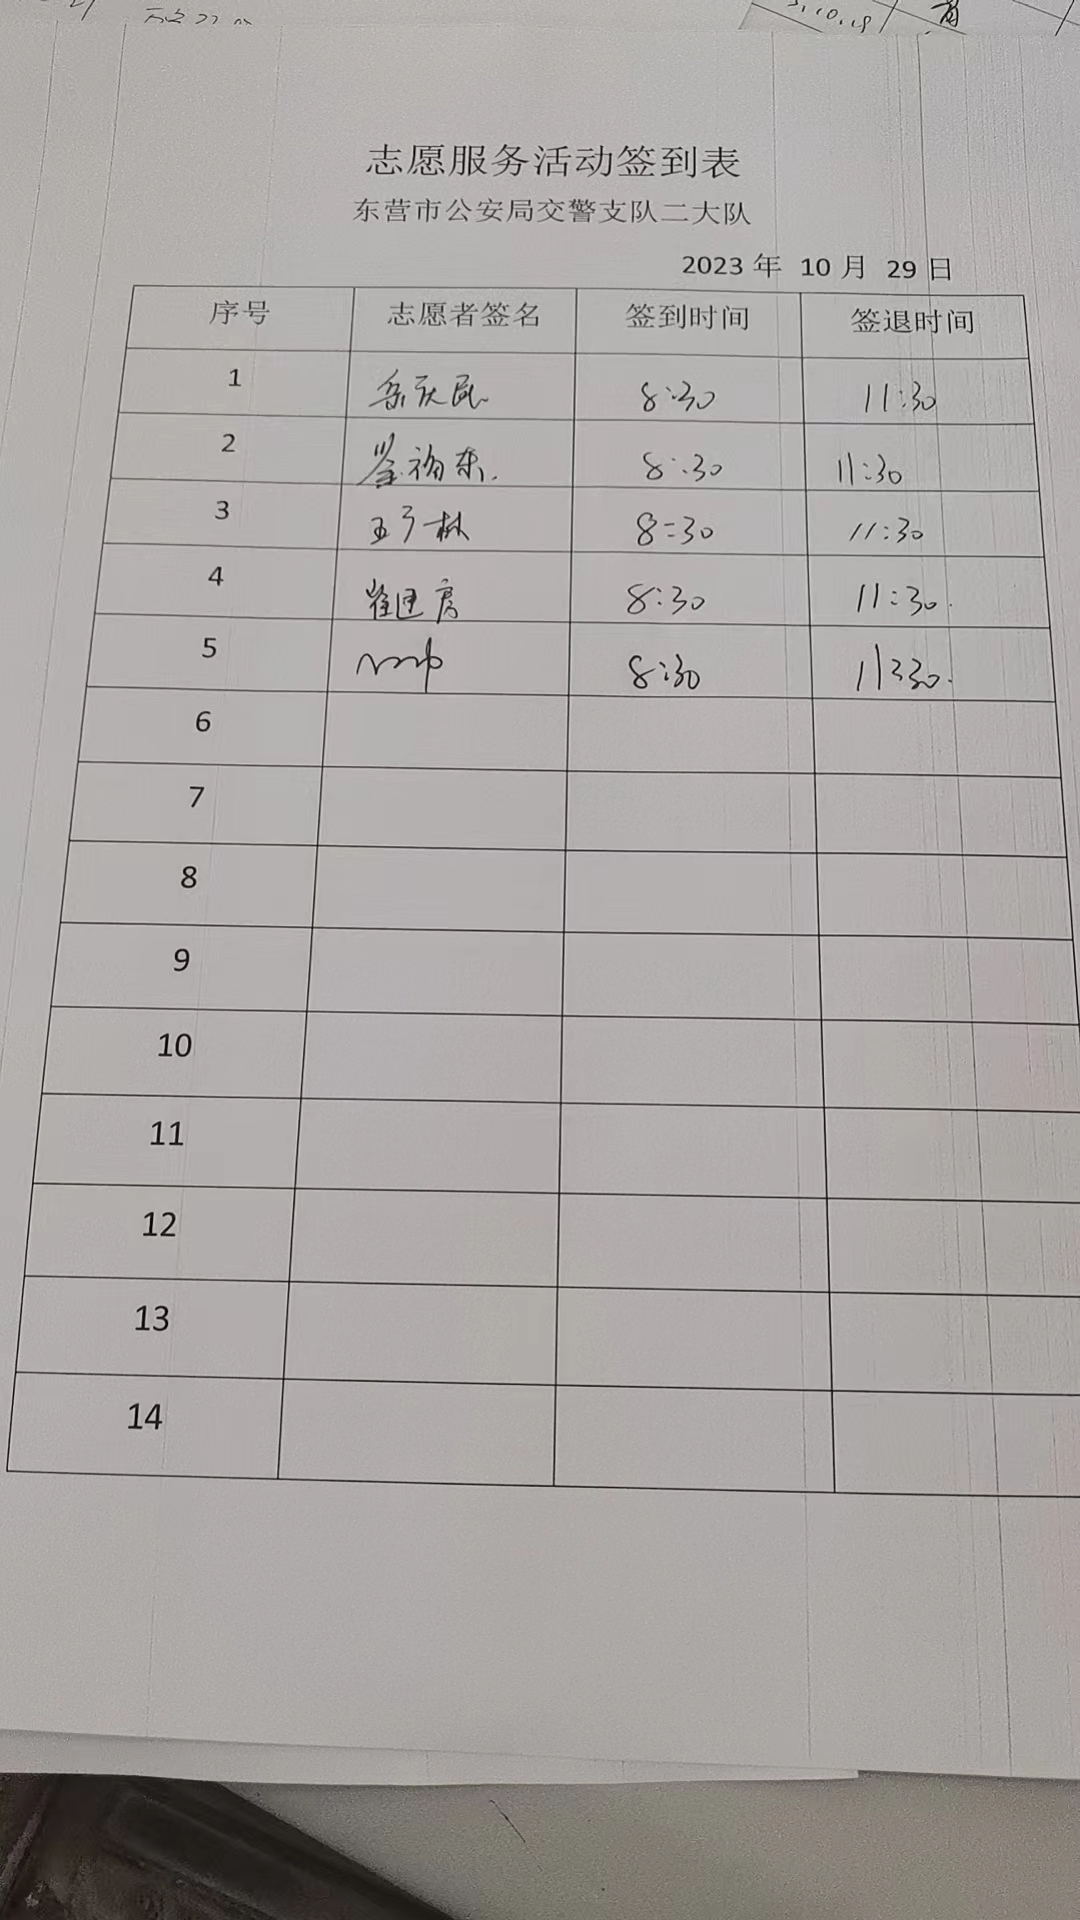 志愿服务活动签到表
东营市公安局交警支队二大队
2023 年 10 月 29 日
序号 志愿者签名 签到时间 签退时间
1 岳庆民 8:30 11:30
2 8:30 11:30
3 林 8:30 11:30
4 崔建房 8:30 11:30
5 8:30 11:30
6
7
8
9
10
11
12
13
14